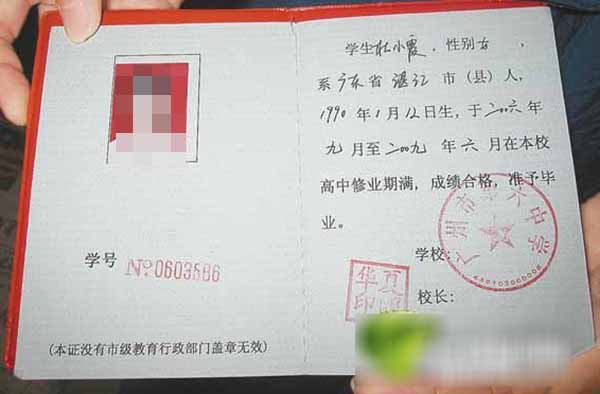 学号 №0603586
(本证没有市级教育行政部门盖章无效)
学生杜小霞，性别女，
系广东省湛江市(县)人，
1990年1月12日生，于二〇〇六年
九月至二〇〇九年六月在本校
高中修业期满，成绩合格，准予毕
业。
学校：
广州市第六中学
校长：
夏
华印